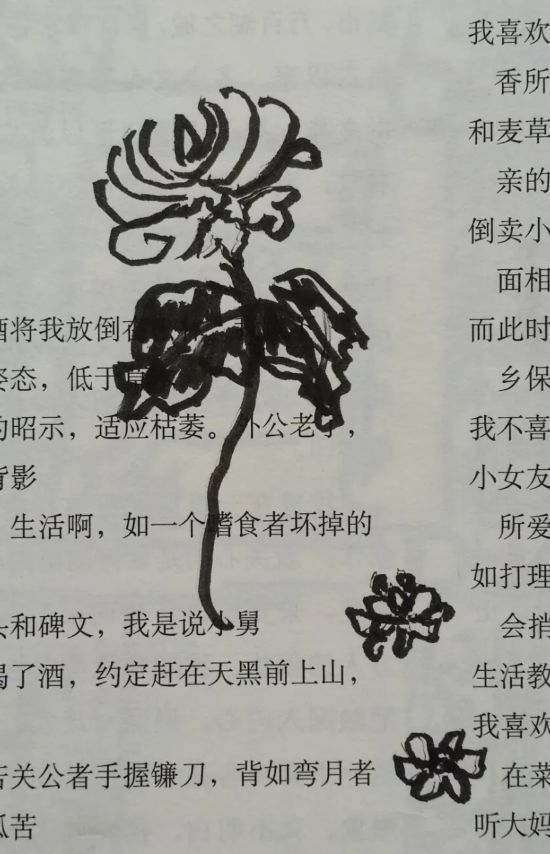 酒将我放倒在
姿态，低于
的昭示，适应枯萎。外公老了，
背影
生活啊，如一个嗜食者坏掉的
头和碑文，我是说小舅
喝了酒，约定赶在天黑前上山，
苦关公者手握镰刀，背如弯月者
瓜苦
我喜欢
香所
和麦草
亲的
倒卖小
面相
而此时
乡保
我不喜
小女友
所爱
如打理
会捎
生活教
我喜欢
在菜
听大妈